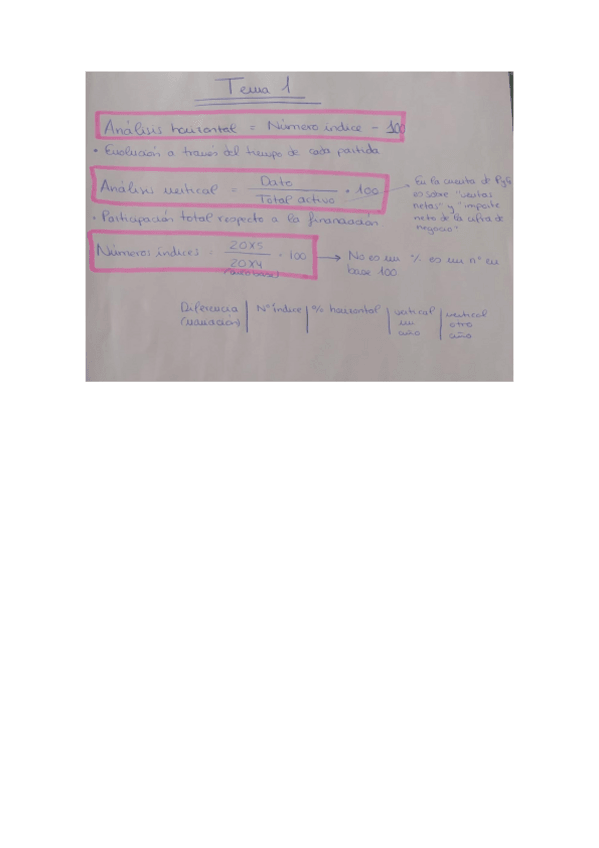 Tema 1
Análisis horizontal = Número índice - 100
• Evolución a través del tiempo de cada partida
Análisis vertical = Dato / Total activo · 100
En la cuenta de PyG
es sobre "ventas
netas" y "importe
neto de la cifra de
negocio"
• Participación total respecto a la financiación
Números índices = 20X5 / 20X4 · 100
(año base)
→ No es un % es un nº en
base 100
Diferencia | Nº índice | % horizontal | vertical | vertical
(variación) un otro
año año